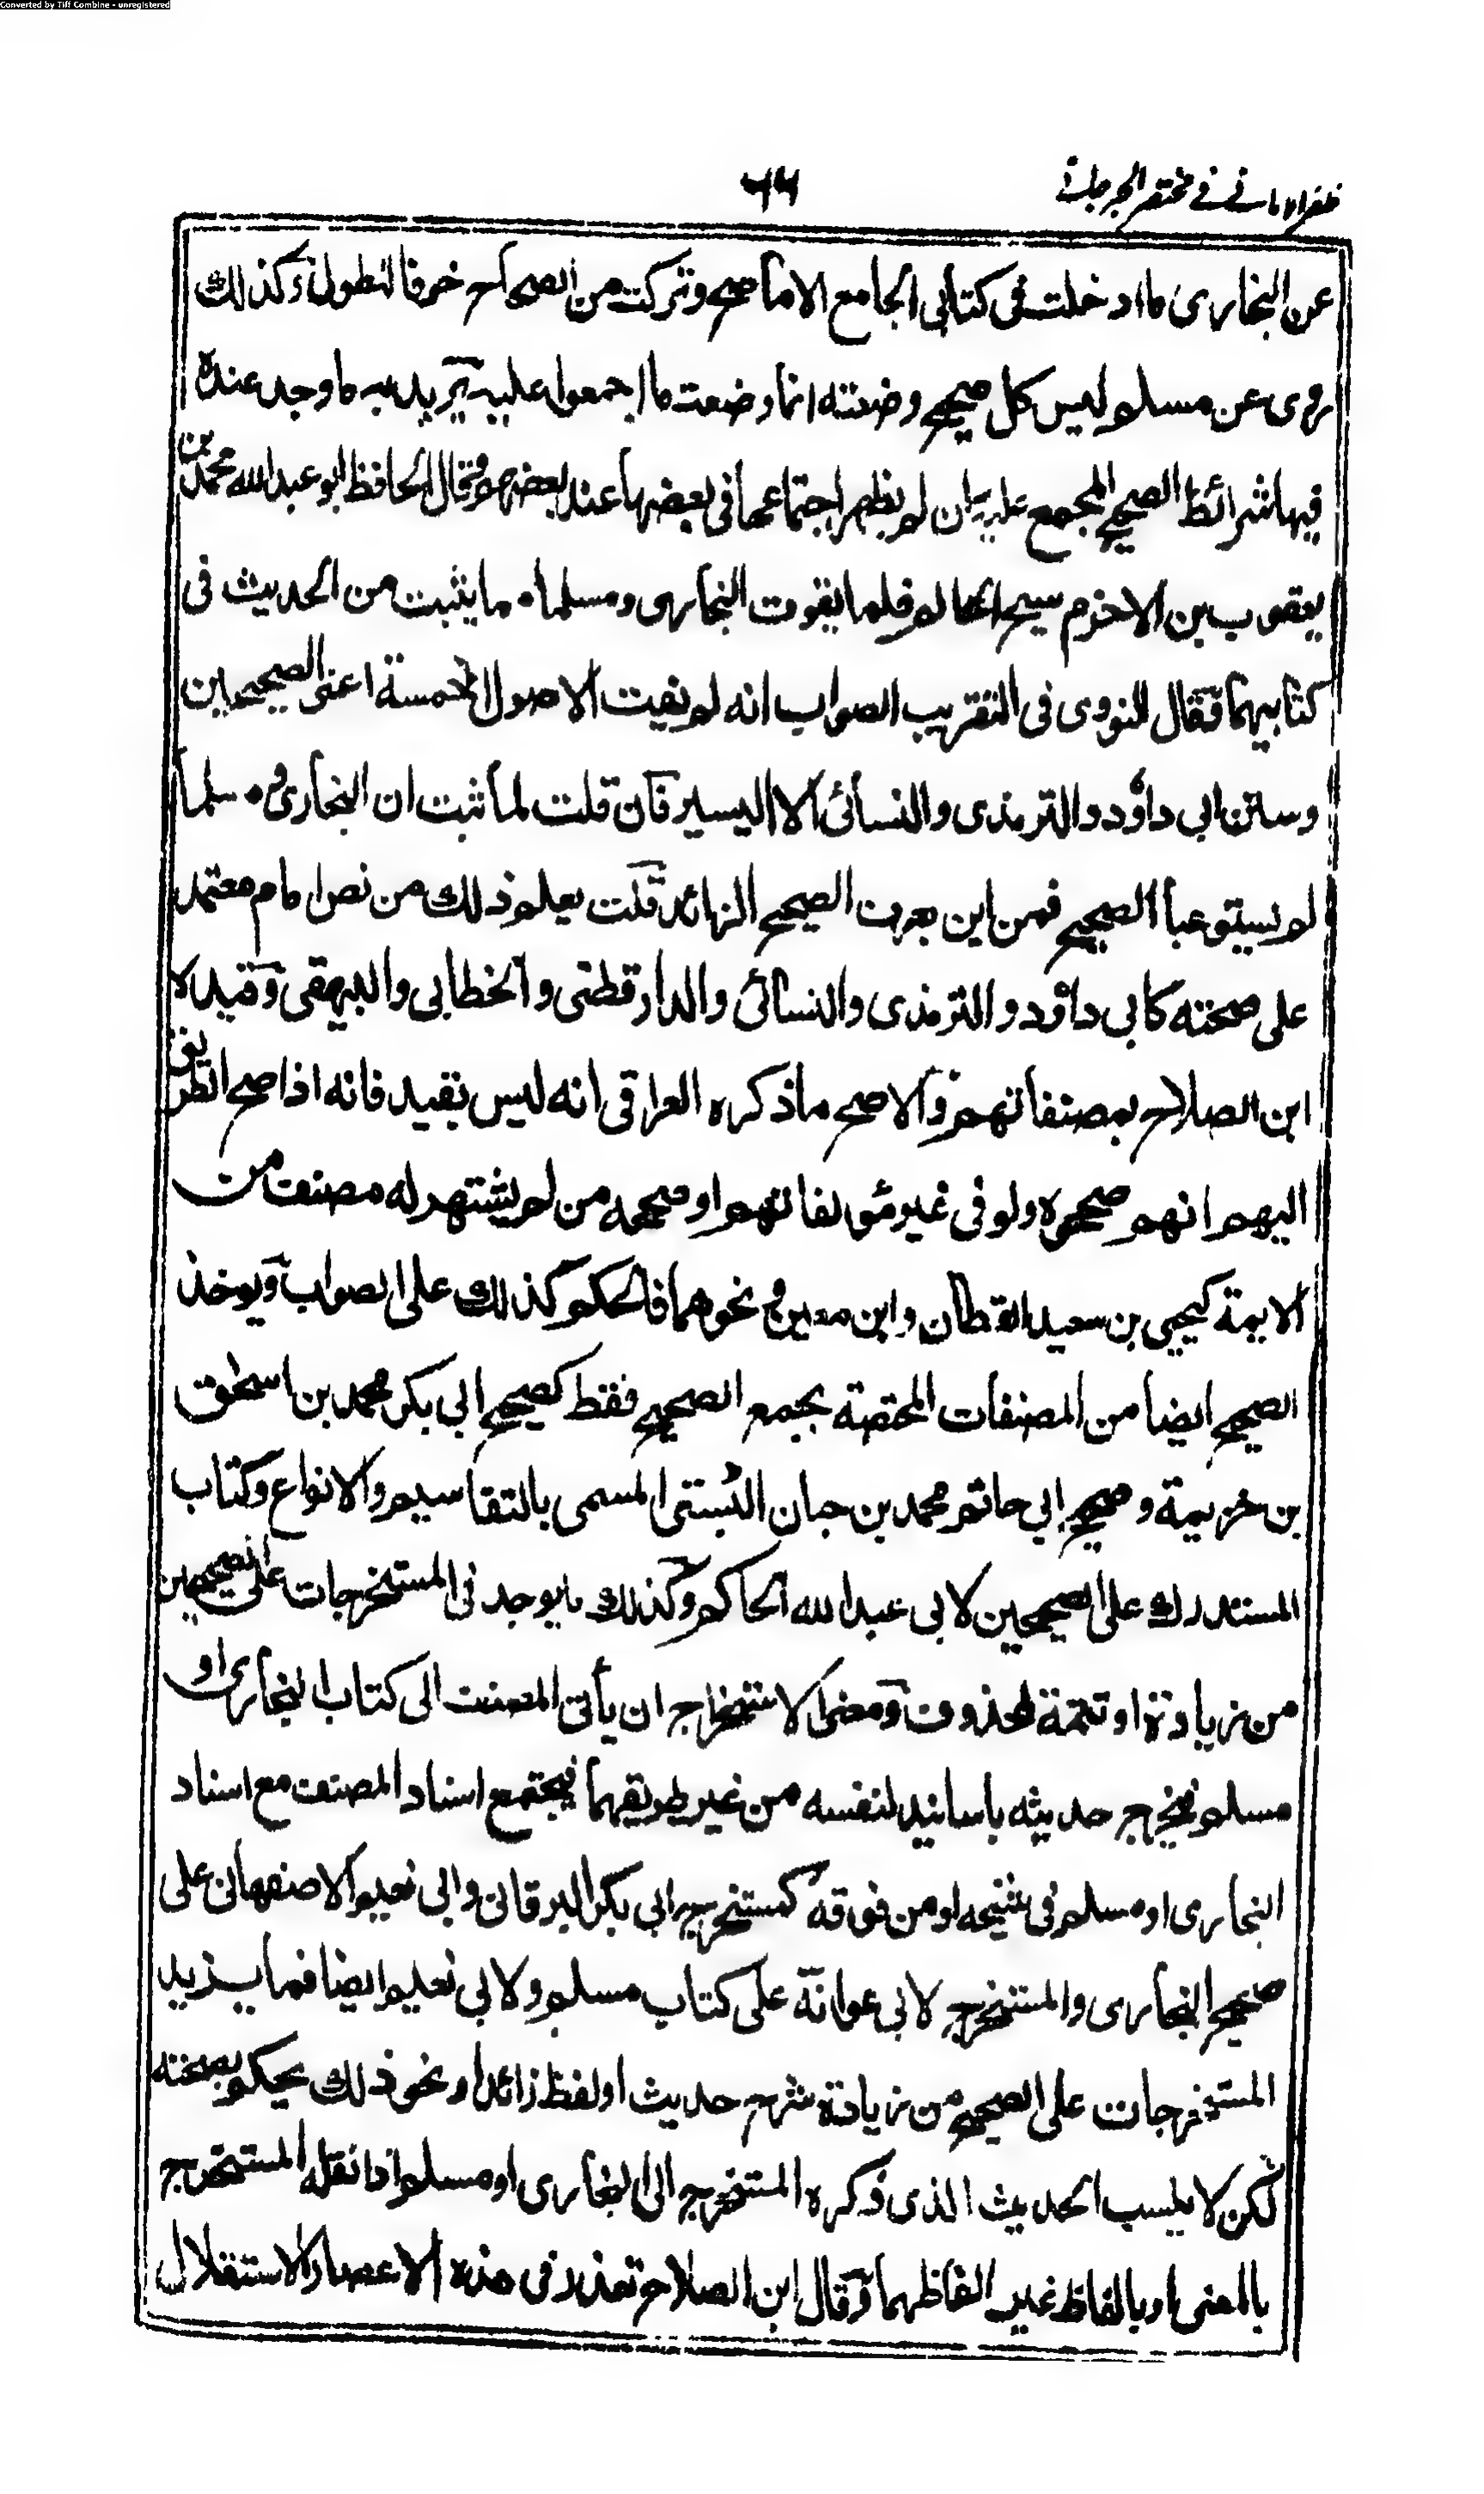 Converted by Tiff Combine - unregistered
ظفر الامانی فی مختصر الجرجانی
٦٦
عن البخاری ما ادخلت فی کتابی الجامع الا ما صح وترکت من الصحاح خوفا لتطول وکذلك
روی عن مسلم لیس کل صحیح وضعته انما وضعت ما اجمعوا علیه یرید به ما وجد عنده
فیها شرائط الصحیح المجمع علیه وان لم یظهر اجتماعها فی بعضها عند بعضهم وقال الحافظ ابو عبد الله محمد بن
یعقوب بن الاخزم شیخ الحاکم قلما یفوت البخاری ومسلما ما یثبت من الحدیث فی
کتابیهما فقال النووی فی التقریب الصواب انه لم یفت الاصول الخمسة اعنی الصحیحین
وسنن ابی داؤد والترمذی والنسائی الا الیسیر فان قلت لما ثبت ان البخاری ومسلما
لم یستوعبا الصحیح فمن این یعرف الصحیح الزائد قلت یعلم ذلك من نص امام معتمد
علی صحته کابی داؤد والترمذی والنسائی والدار قطنی والخطابی والبیهقی وقیده لا
ابن الصلاح بمصنفاتهم والاصح ما ذکره العراقی انه لیس بقید فانه اذا صح الطریق
الیهم انهم صححوه ولو فی غیر مؤلفاتهم او صححه من لم یشتهر له مصنف من
الایمة کیحیی بن سعید القطان وابن معین ونحوهما فالحکم کذلك علی الصواب ویوخذ
الصحیح ایضا من المصنفات المختصة بجمع الصحیح فقط کصحیح ابی بکر محمد بن اسحٰق
بن خزیمة وصحیح ابی حاتم محمد بن حبان البُستی المسمی بالتقاسیم والانواع وکتاب
المستدرك علی الصحیحین لابی عبد الله الحاکم وکذلك ما یوجد فی المستخرجات علی الصحیحین
من زیادة او تتمة لمحذوف ومعنی الاستخراج ان یأتی المصنف الی کتاب البخاری او
مسلم فیخرج حدیثه باسانید لنفسه من غیر طریقهما فیجتمع اسناد المصنف مع اسناد
البخاری او مسلم فی شیخه او من فوقه کمستخرج ابی بکر البرقانی وابی نعیم الاصفهانی علی
صحیح البخاری والمستخرج لابی عوانة علی کتاب مسلم ولابی نعیم ایضا فما یزید
المستخرجات علی الصحیح من زیادة شرح حدیث او لفظ زائد او نحو ذلك یحکم بصحته
لکن لا ینسب الحدیث الذی ذکره المستخرج الی البخاری او مسلم اذا نقله المستخرج
بالمعنی او بالفاظ غیر الفاظهما وقال ابن الصلاح تعذر فی هذه الاعصار الاستقلال